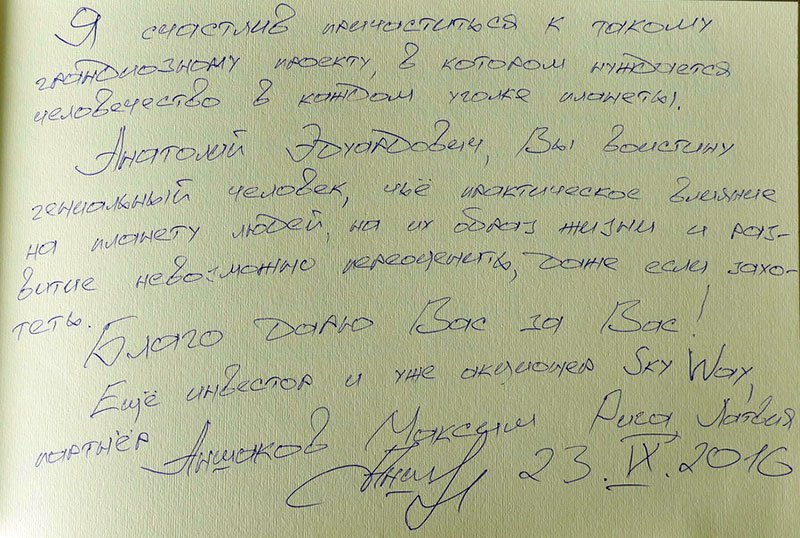 Я счастлив причаститься к такому
грандиозному проекту, в котором нуждается
человечество в каждом уголке планеты.
Анатолий Эдуардович, Вы воистину
гениальный человек, чьё практическое влияние
на планету людей, на их образ жизни и раз-
витие невозможно переоценить, даже если захо-
теть.
Благо дарю Вас за Вас!
Ещё инвестор и уже акционер Sky Way,
партнёр Аншаков Максим Рига, Латвия
23.IX.2016